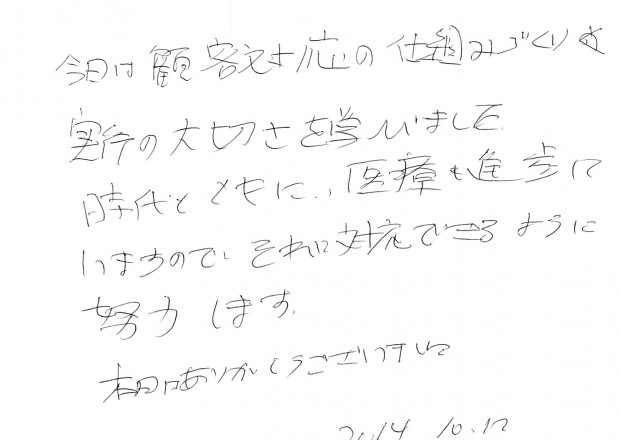 今日は顧客対応の仕組みづくりや
実行の大切さを学びました
時代とともに、医療も進歩して
いますので、それに対応できるように
努力します。
本日はありがとうございました
2014 10.12